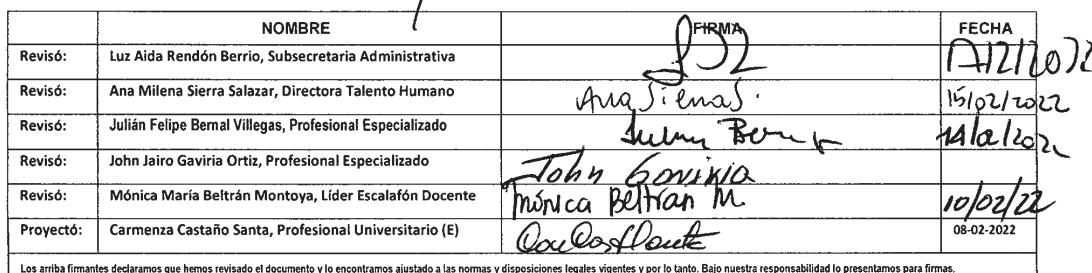 NOMBRE FIRMA FECHA
Revisó: Luz Aida Rendón Berrio, Subsecretaria Administrativa 17/2/2022
Revisó: Ana Milena Sierra Salazar, Directora Talento Humano Ana Sierra S. 15/02/2022
Revisó: Julián Felipe Bernal Villegas, Profesional Especializado
Revisó: John Jairo Gaviria Ortiz, Profesional Especializado John Gaviria
Revisó: Mónica María Beltrán Montoya, Líder Escalafón Docente Mónica Beltrán M. 10/02/22
Proyectó: Carmenza Castaño Santa, Profesional Universitario (E) 08-02-2022
Los arriba firmantes declaramos que hemos revisado el documento y lo encontramos ajustado a las normas y disposiciones legales vigentes y por lo tanto. Bajo nuestra responsabilidad lo presentamos para firmas.